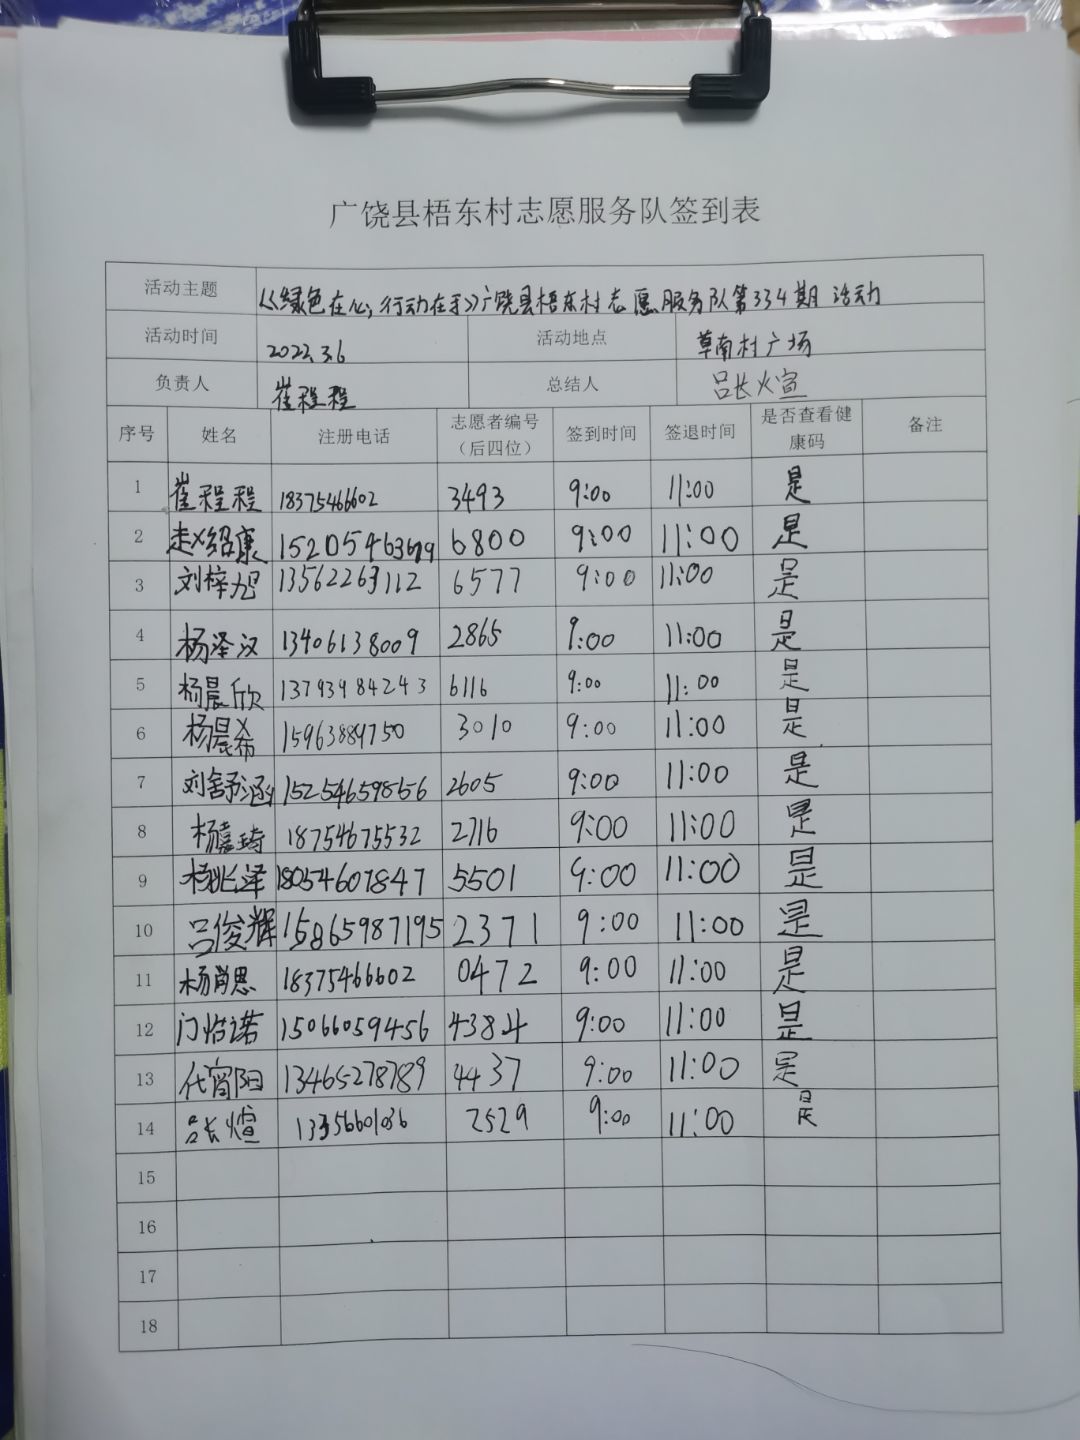 广饶县梧东村志愿服务队签到表
活动主题 《绿色在心,行动在手》广饶县梧东村志愿服务队第334期活动
活动时间 2022.3.6 活动地点 草南村广场
负责人 崔程程 总结人 吕长煊
序号 姓名 注册电话 志愿者编号（后四位） 签到时间 签退时间 是否查看健康码 备注
1 崔程程 18375466602 3493 9:00 11:00 是
2 赵绍康 6800 9:00 11:00 是
3 刘梓旭 13562263112 6577 9:00 11:00 是
4 杨泽汉 13406138009 2865 9:00 11:00 是
5 杨晨欣 13793984243 6116 9:00 11:00 是
6 杨晨希 15963889750 3010 9:00 11:00 是
7 刘舒涵 2605 9:00 11:00 是
8 杨嘉琦 18754675532 2716 9:00 11:00 是
9 杨兆泽 18054607847 5501 9:00 11:00 是
10 吕俊辉 15865987195 2371 9:00 11:00 是
11 杨肖思 18375466602 0472 9:00 11:00 是
12 门怡诺 15066059456 4384 9:00 11:00 是
13 代宵阳 13465278789 4437 9:00 11:00 是
14 吕长煊 13356601036 2529 9:00 11:00 是
15
16
17
18